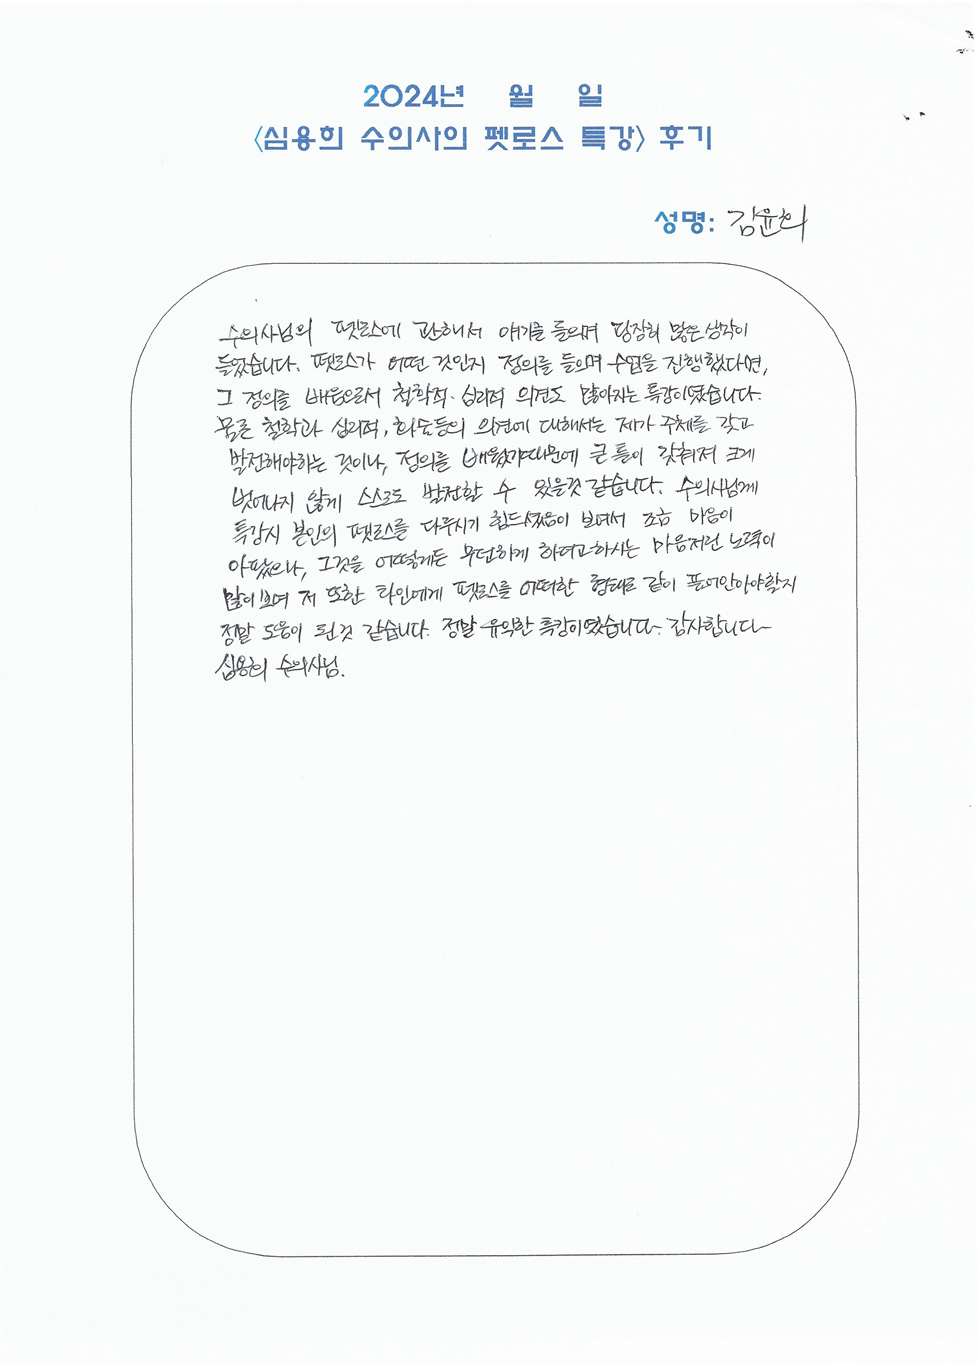 2024년 월 일
<심용희 수의사의 펫로스 특강> 후기
성명: 김윤희
수의사님의 펫로스에 관해서 얘기를 들으며 굉장히 많은 생각이
들었습니다. 펫로스가 어떤 것인지 정의를 들으며 수업을 진행했다면,
그 정의를 배움으로서 철학적·심리적 의견도 많아지는 특강이였습니다.
물론 철학과 심리적, 등의 의견에 대해서는 제가 주체를 갖고
발전해야하는 것이나, 정의를 배웠기때문에 큰 틀이 갖춰져 크게
벗어나지 않게 스스로도 발전할 수 있을것 같습니다. 수의사님께
특강시 본인의 펫로스를 다루시기 힘드셨음이 보여서 조금 마음이
아팠으나, 그것을 어떻게든 무던하게 하려고하시는 마음저런 노력이
많이 보여 저 또한 타인에게 펫로스를 어떠한 형태로 같이 품어안아야할지
정말 도움이 된것 같습니다. 정말 유익한 특강이였습니다. 감사합니다
심용희 수의사님.